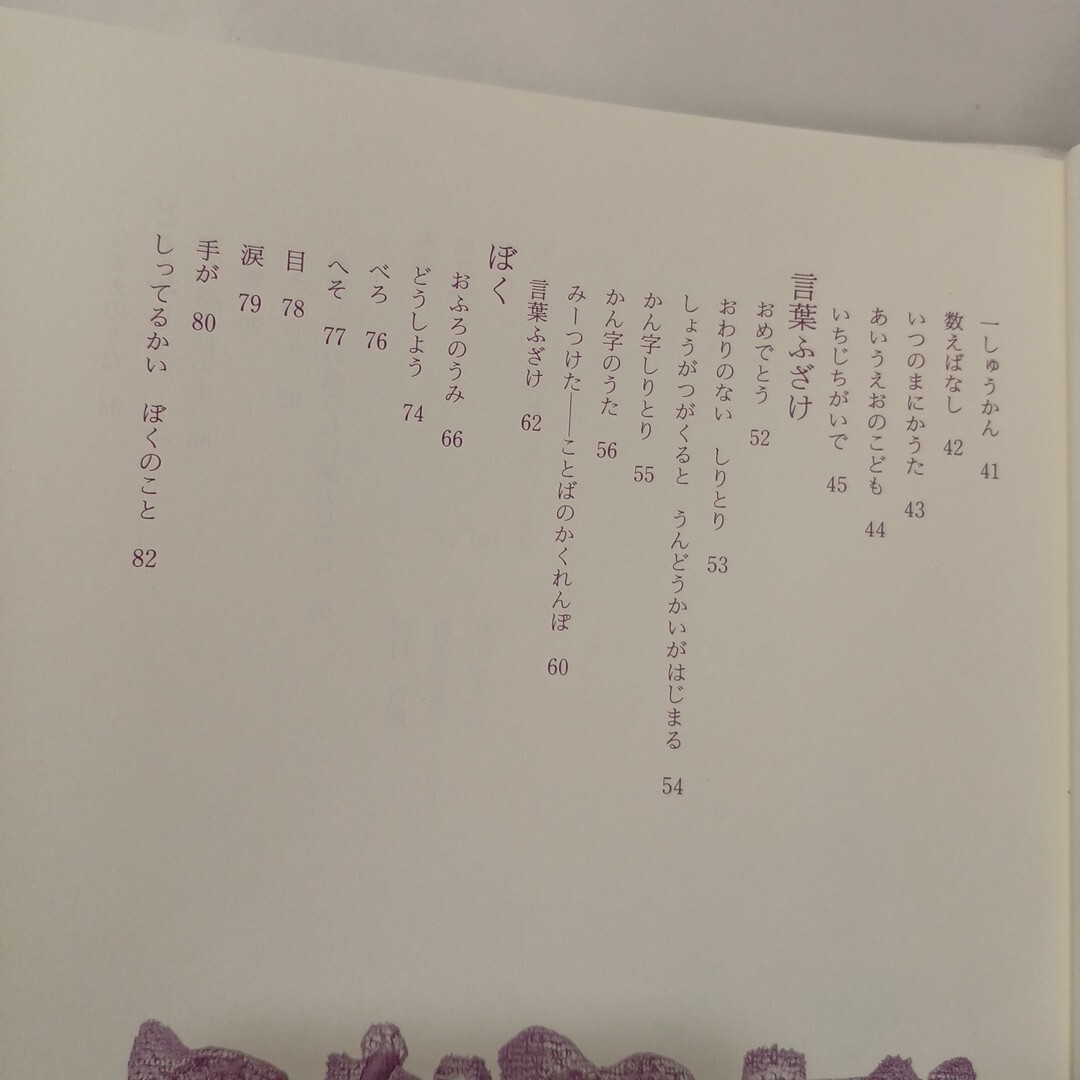 一しゅうかん 41
数えばなし 42
いつのまにかうた 43
あいうえおのこども 44
いちじちがいで 45
言葉ふざけ
おめでとう 52
おわりのない しりとり 53
しょうがつがくると うんどうかいがはじまる 54
かん字しりとり 55
かん字のうた 56
みーつけた――ことばのかくれんぼ 60
言葉ふざけ 62
ぼく
おふろのうみ 66
どうしよう 74
べろ 76
へそ 77
目 78
涙 79
手が 80
しってるかい ぼくのこと 82